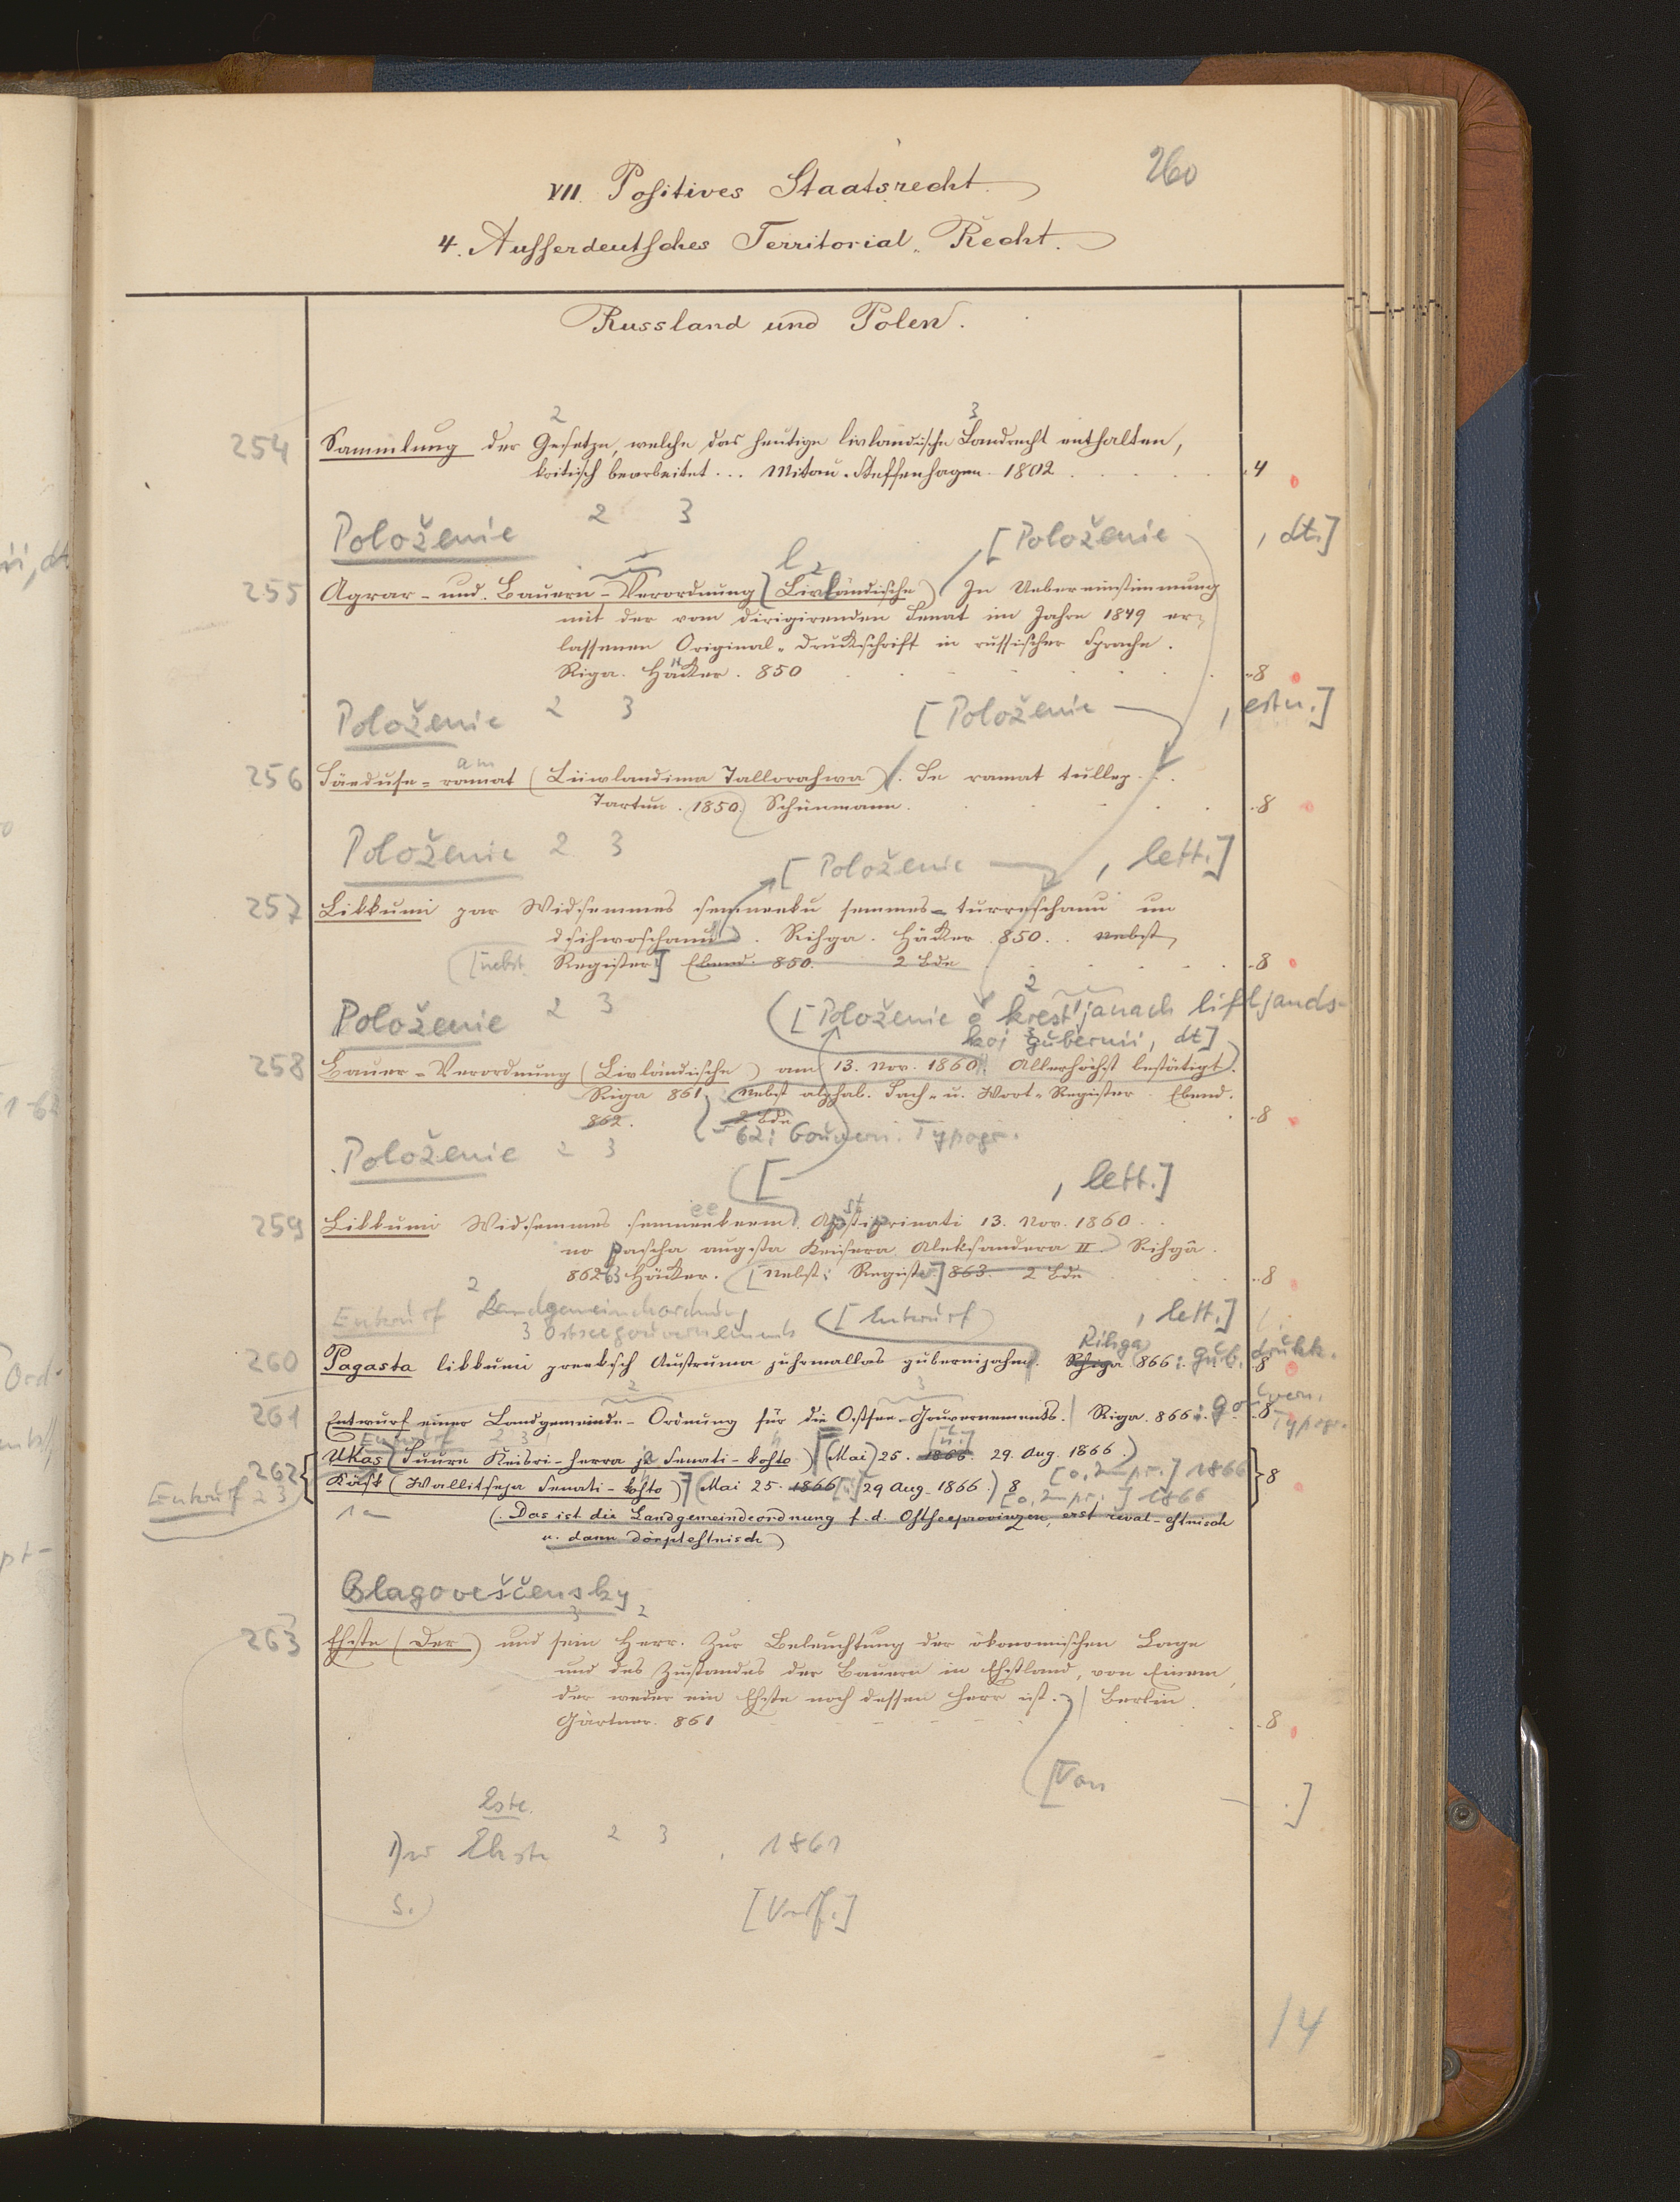 260
VII. Positives Staatsrecht.
4. Ausserdeutsches Territorial-Recht.
Russland und Polen.
2 3
254 Sammlung der Gesetze, welche das heutige livländische Landrecht enthalten,
kritisch bearbeitet... Mitau. Steffenhagen. 1802 4
Položenie 2 3 [Položenie , dt.]
255 Agrar- und Bauern-Verordnung (Livländische) In Uebereinstimmung
mit der vom dirigirenden Senat im Jahre 1849 er-
lassenen Original-Druckschrift in russischer Sprache.
Riga. Häcker. 850 8
Položenie 2 3 [Položenie , estn.]
256 Säeduse-ramat (Liiwlandima Tallorahwa). Se ramat tulleg...
Tartun. 1850. Schünmann. 8
Položenie 2 3 [Položenie , lett.]
257 Likkumi par Widsemmes semneeku semmes-turreschanu un
dsihwoschanu. Rihga. Häcker. 850. nebst
[nebst Register] Ebend. 850. 2 Bde 8
Položenie 2 3 ([Položenie o krest'janach lifljands-
koj gubernii, dt]
258 Bauer-Verordnung (Livländische) am 13. Nov. 1860. Allerhöchst bestätigt.
Riga 861. Nebst alphab. Sach- u. Wort-Register. Ebend.
862. 2 Bde 8
-62: Gouvern. Typogr.
Položenie 2 3 [ , lett.]
259 Likkumi Widsemmes semneekeem. Apstiprinati 13. Nov. 1860..
no pascha augsta Keisera Aleksandera II. Rihgâ.
862 63 Häcker. [Nebst: Register] 863. 2 Bde 8
Entwurf 2 Landgemeindeordnung ([Entwurf) , lett.]
3 Ostseegouvernements
260 Pagasta likkumi preeksch Austruma juhrmallas gubernijahm. Rihga 866: gub. drukk. 8
2 3
261 Entwurf einer Landgemeinde-Ordnung für die Ostsee-Gouvernements. Riga. 866: Gouvern. Typogr. 8
Entwurf 2 3
262 Ukas (Suure Keisri-herra ja Senati-kohto) (Mai) 25. 1866. [u.] 29. Aug. 1866.) [o, 1866
Entwurf 2 3 Käsk (Wallitseja Senati-kohto) (Mai 25. 1866 29 Aug. 1866.) 8 [o, 1866 8
(Das ist die Landgemeindeordnung f. d. Ostseeprovinzen, erst reval-estnisch
u. dann dörptestnisch)
Blagoveščensky
3 2
263 Ehste (Der) und sein Herr. Zur Beleuchtung der ökonomischen Lage
und des Zustandes der Bauern in Ehstland, von Einem,
der weder ein Ehste noch dessen Herr ist. Berlin.
Gärtner. 861 8
[Von .]
Este.
Der Ehste 2 3 , 1861
s. [Verf.]
14